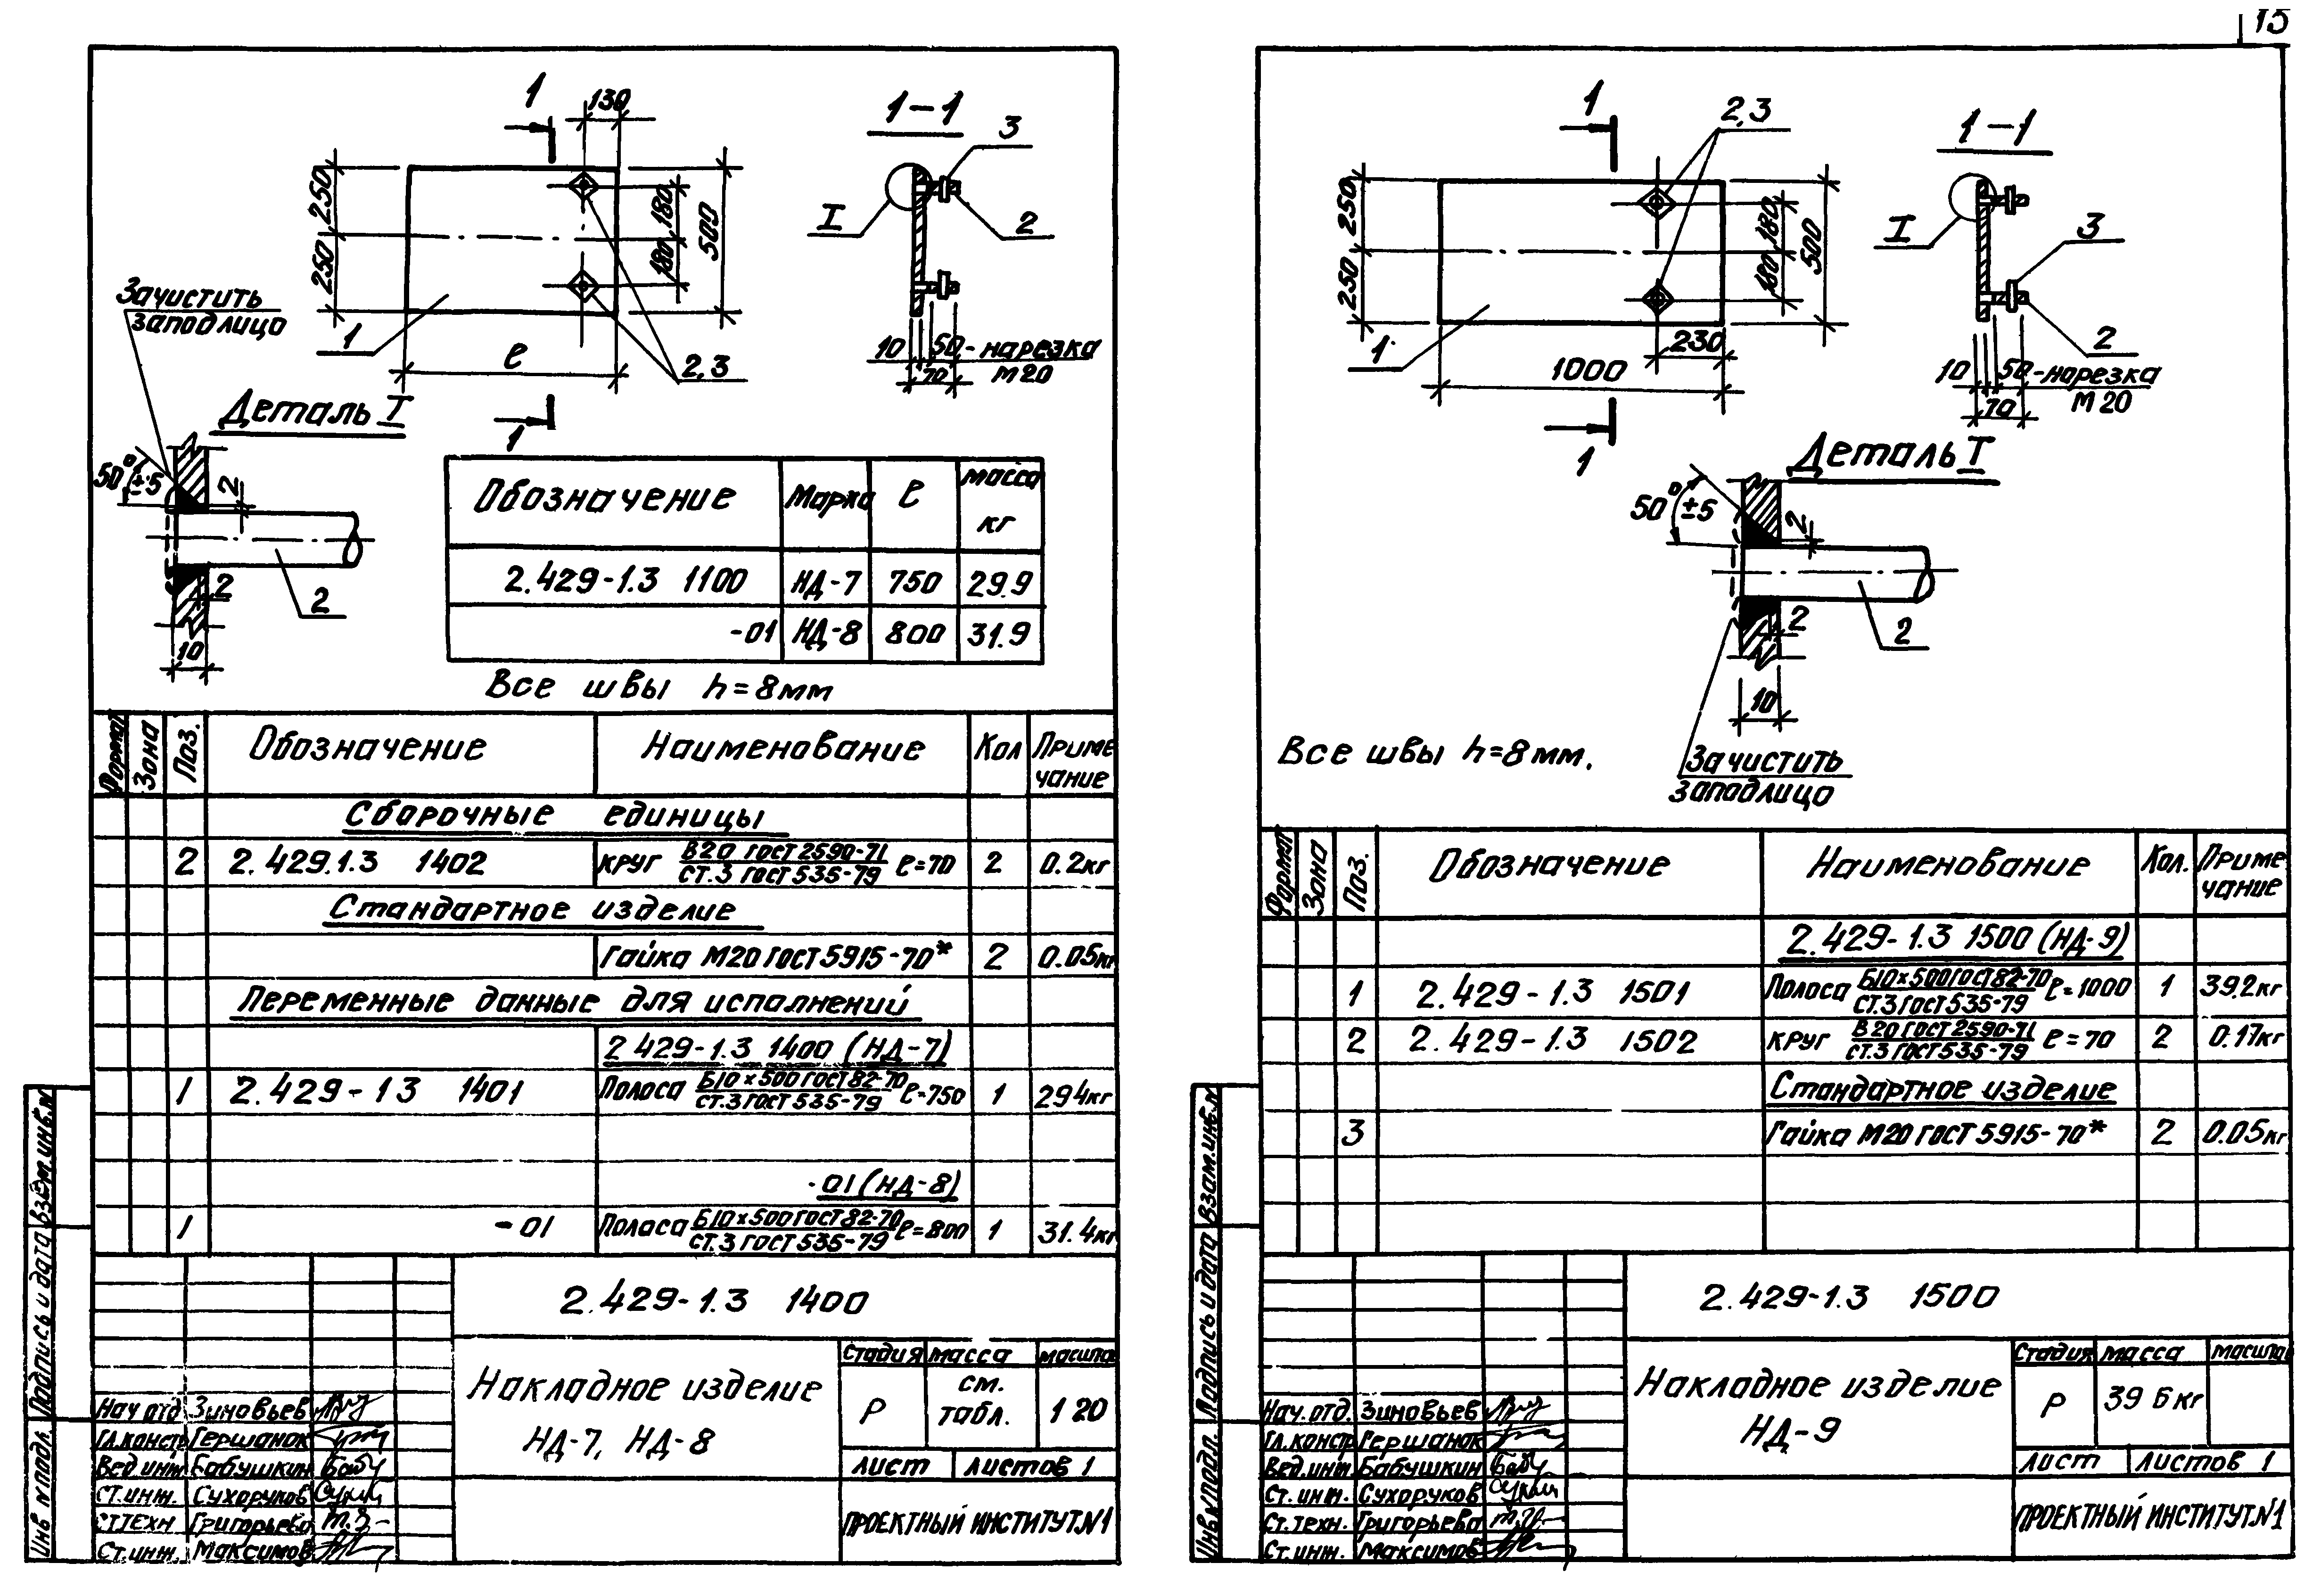 15
1
130
1-1
3
250
250
180
180
500
I
2
Зачистить
заподлицо
1
ℓ
2,3
10
50-нарезка
70
М20
1
Деталь I
50°±5
2
2
2
10
Обозначение Марка ℓ масса кг
2.429-1.3 1100 НД-7 750 29.9
-01 НД-8 800 31.9
Все швы h=8мм
Формат Зона Поз. Обозначение Наименование Кол Примечание
Сборочные единицы
2 2.429.1.3 1402 круг В20 ГОСТ 2590-71 / СТ.3 ГОСТ 535-79 ℓ=70 2 0.2кг
Стандартное изделие
Гайка М20 ГОСТ 5915-70* 2 0.05кг
Переменные данные для исполнений
2 429-1.3 1400 (НД-7)
1 2.429-13 1401 Полоса Б10×500 ГОСТ 82-70 / Ст.3 ГОСТ 535-79 ℓ=750 1 294кг
-01 (НД-8)
1 -01 Полоса Б10×500 ГОСТ 82-70 / СТ.3 ГОСТ 535-79 ℓ=800 1 31.4кг
2.429-1.3 1400
Накладное изделие
НД-7, НД-8
Стадия масса масштаб
Р см. табл. 1 20
лист листов 1
ПРОЕКТНЫЙ ИНСТИТУТ №1
Нач отд Зиновьев
Гл.констр Гершанок
Вед инж Бабушкин
Ст.инж. Сухоруков
Ст.техн Григорьева
Ст.инж. Максимов
Инв № подл.
Подпись и дата
Взам.инв.№
1
2,3
1-1
250
250
180
180
500
I
3
2
1
230
1000
10
50-нарезка
70
М20
1
Деталь I
50°±5
2
2
2
10
Зачистить
заподлицо
Все швы h=8мм.
Формат Зона Поз. Обозначение Наименование Кол. Примечание
2.429-1.3 1500 (НД-9)
1 2.429-1.3 1501 Полоса Б10×500 ГОСТ 82-70 / СТ.3 ГОСТ 535-79 ℓ=1000 1 39.2кг
2 2.429-1.3 1502 круг В 20 ГОСТ 2590-71 / ст.3 ГОСТ 535-79 ℓ=70 2 0.17кг
Стандартное изделие
3 Гайка М20 ГОСТ 5915-70* 2 0.05кг
2.429-1.3 1500
Накладное изделие
НД-9
Стадия масса масштаб
Р 39 6кг
лист листов 1
ПРОЕКТНЫЙ ИНСТИТУТ №1
Нач. отд. Зиновьев
Гл.констр Гершанок
Вед.инж. Бабушкин
Ст.инж. Сухоруков
Ст.техн. Григорьева
Ст.инж. Максимов
Инв № подл.
Подпись и дата
Взам.инв.№